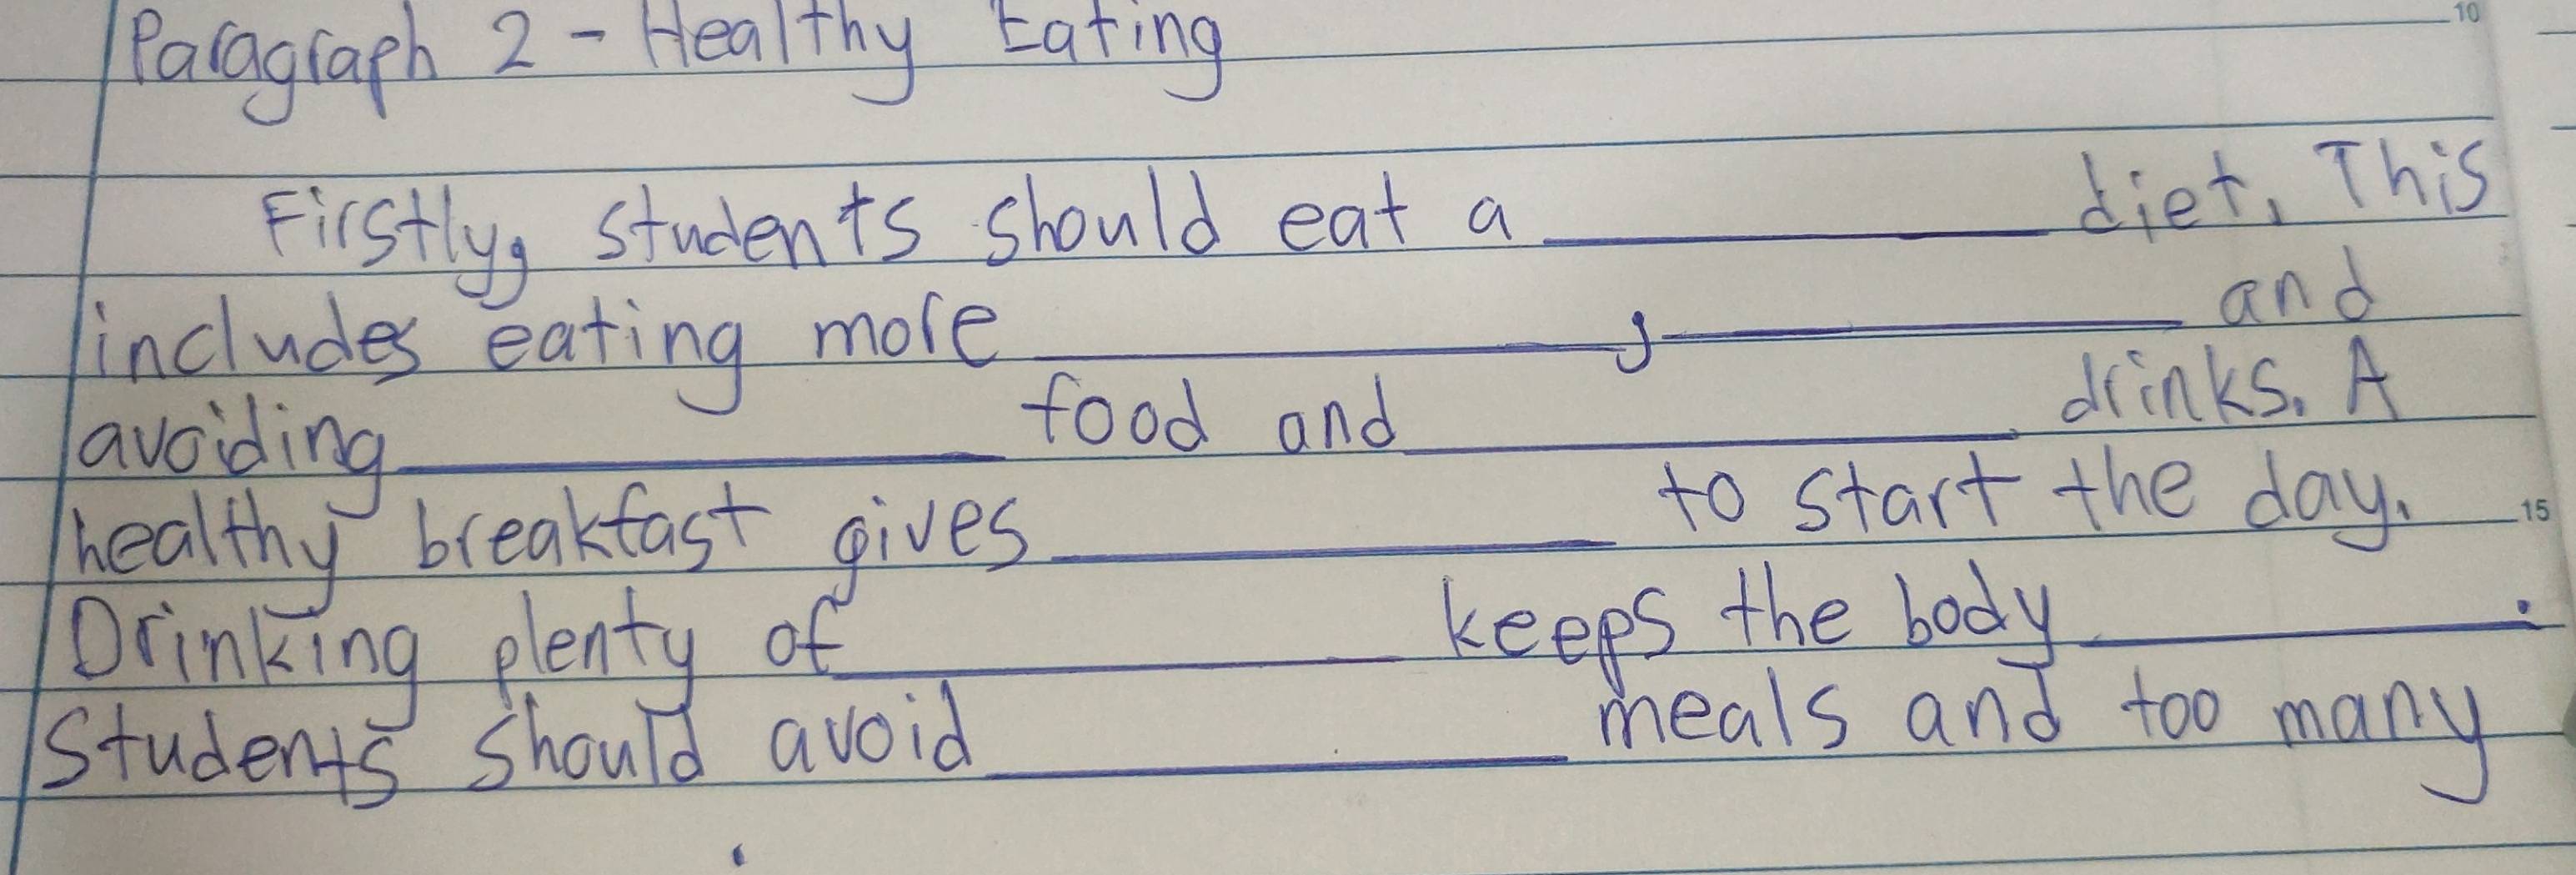 10
Paragraph 2 - Healthy Eating
Firstly, students should eat a __________ diet. This
includes eating more __________, __________ and
avoiding __________ food and __________ drinks. A
healthy breakfast gives __________ to start the day.
15
Drinking plenty of __________ keeps the body __________.
Students should avoid __________ meals and too many
.